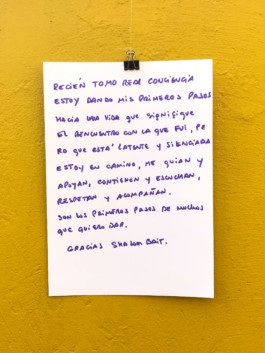 RECIÉN TOMO REAL CONCIENCIA
ESTOY DANDO MIS PRIMEROS PASOS
HACIA UNA VIDA QUE SIGNIFIQUE
EL RENCUENTRO CON LA QUE FUI, PE
RO QUE ESTÁ LATENTE Y SILENCIADA
ESTOY EN CAMINO, ME GUIAN Y
APOYAN, CONTIENEN Y ESCUCHAN,
RESPETAN Y ACOMPAÑAN.
SON LOS PRIMEROS PASOS DE MUCHOS
QUE QUIERO DAR.
GRACIAS SHALOM BAIT.